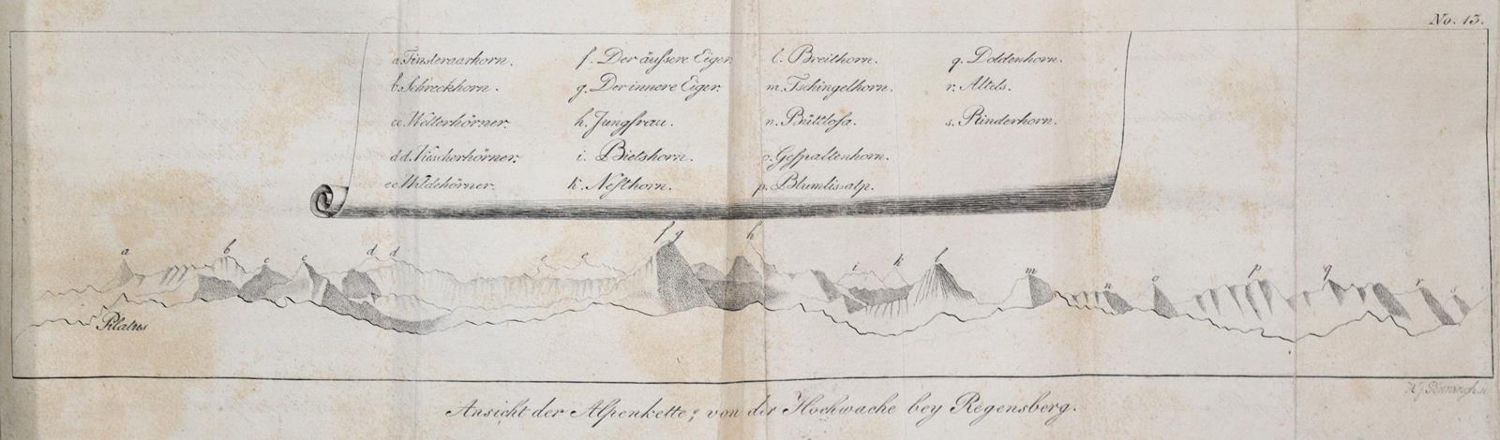 No. 13.
a Finsteraarhorn. f. Der äußere Eiger l. Breithorn. q. Doldenhorn.
b Schreckhorn. g. Der innere Eiger. m. Tschingelhorn. r. Altels.
cc Wetterhörner. h. Jungfrau. n. Büttlosa. s. Rinderhorn.
d d. Viescherhörner. i. Bietshorn. o. Gespaltenhorn.
ee Wildehörner. k. Nesthorn. p. Blumlisalp.
a b c c d d e e f g h i k l m n o p q r s
Pilatus
Ansicht der Alpenkette, von der Hochwache bey Regensberg.